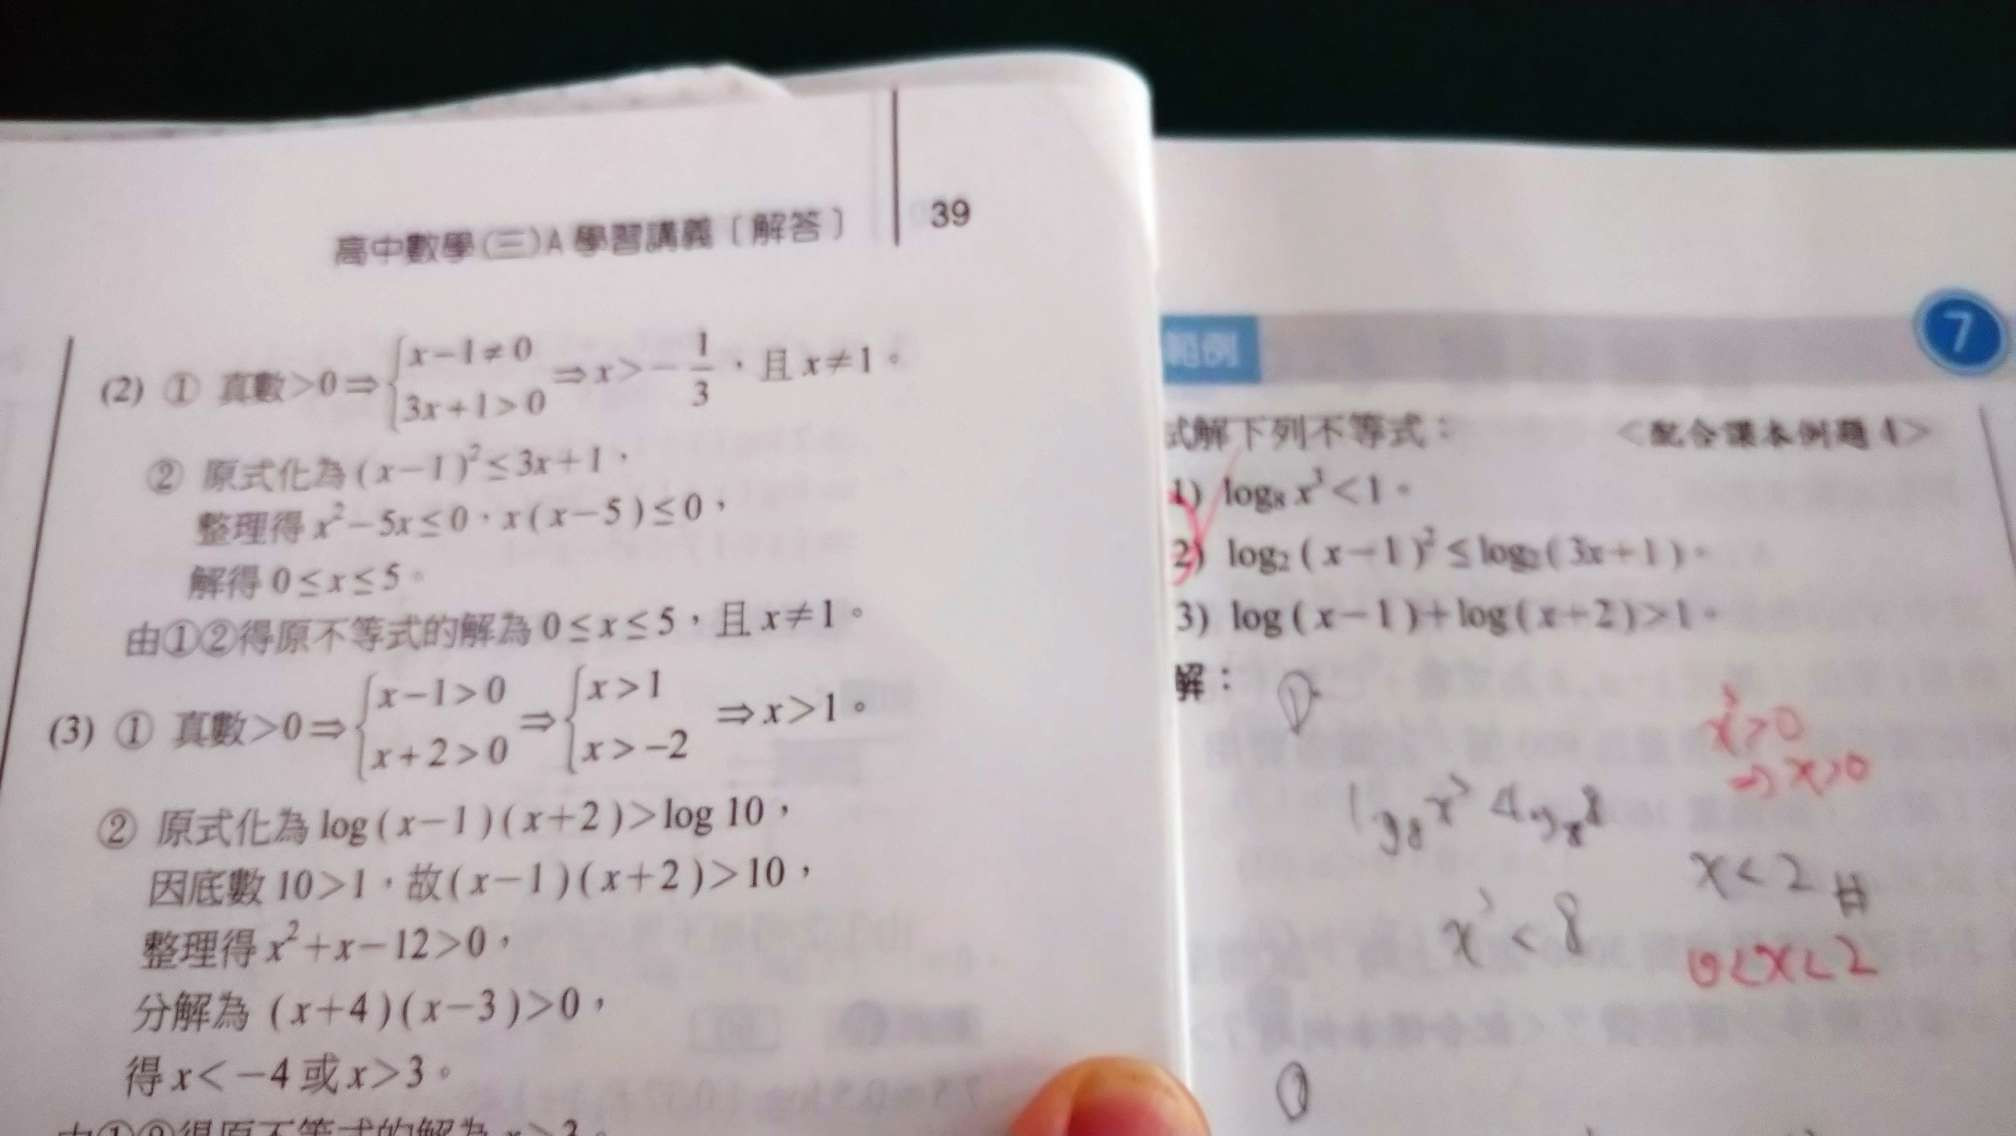 高中數學(三)A 學習講義〔解答〕 39
(2) ① 真數>0⇒{x−1≠0 3x+1>0 ⇒x>−1/3,且 x≠1。
② 原式化為 (x−1)²≤3x+1,
整理得 x²−5x≤0,x(x−5)≤0,
解得 0≤x≤5。
由①②得原不等式的解為 0≤x≤5,且 x≠1。
(3) ① 真數>0⇒{x−1>0 x+2>0 ⇒{x>1 x>−2 ⇒x>1。
② 原式化為 log(x−1)(x+2)>log 10,
因底數 10>1,故(x−1)(x+2)>10,
整理得 x²+x−12>0,
分解為 (x+4)(x−3)>0,
得 x<−4 或 x>3。
由①②得原不等式的解為 x>3。
範例 7
式解下列不等式: <配合課本例題 4>
1) log₈ x³<1。
2) log₂(x−1)²≤log₂(3x+1)。
3) log(x−1)+log(x+2)>1。
解:
x³>0
⇒x>0
x<2 #
x³<8
0<x<2